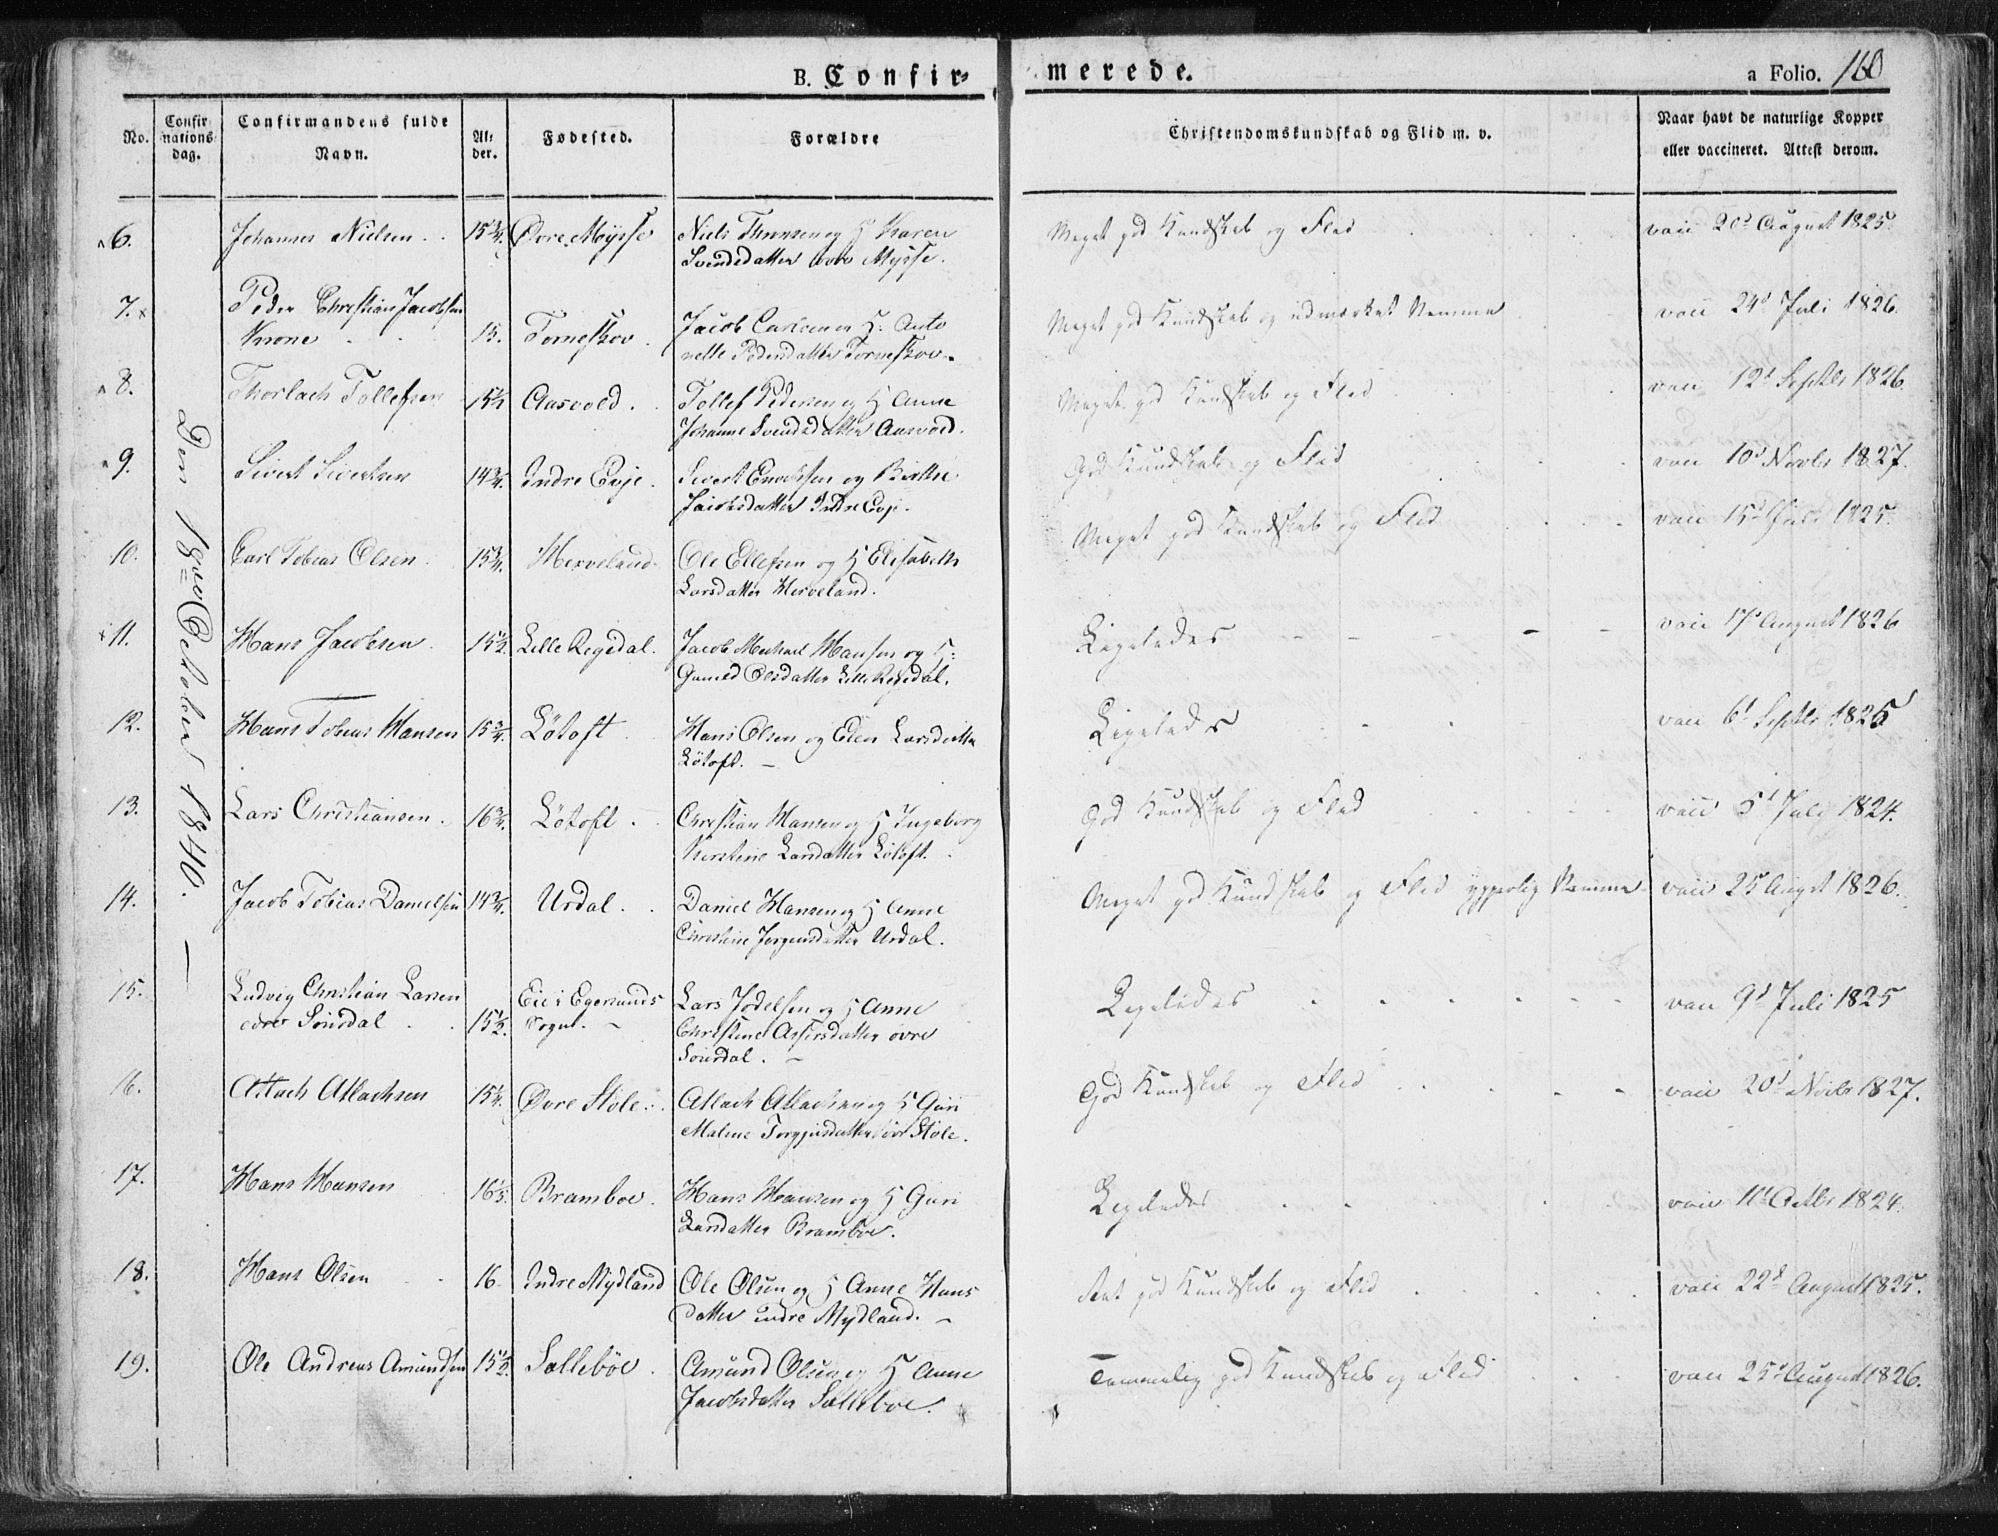 B. Confir-
merede.
a Folio. 160
No.
Confir
nations
dag.
Confirmandens fulde
Navn.
Al-
der.
Fødested.
Forældre
Christendomskundskab og Flid m. v.
Naar havt de naturlige Kopper
eller vaccineret. Attest derom.
Den 18de October 1840.
6. Johannes Nielsen 15 3/4. Øvre Mysse Niels Thomsen og H Karen
Svendsdatter øvre Mysse.
Meget god Kundskab og Flid vacc 20d August 1825.
7. Peder Christian Jacobsen
Krone 15. Torneskov. Jacob Carlsen og H. Anto
nette Pedersdatter Torneskov.
Meget god Kundskab og udmærket Nemme vacc 24d Juli 1826.
8. Thorlach Tollefsen 15 1/2 Aasvold. Tollef Pedersen og H Anne
Johanne Svendsdatter Aasvold.
Meget god Kundskab og Flid vacc 12d Septbr 1826.
9. Sivert Sivertsen 14 3/4. Indre Evje. Sivert Enochsen og Birthe
Jacobsdatter Indre Evje.
God Kundskab og Flid vacc 10d Novbr 1827.
10. Carl Tobias Olsen. 15 3/4. Herveland Ole Ellefsen og H Elisabeth
Larsdatter Herveland.
Meget god Kundskab og Flid vacc 15d Juli 1825.
11. Hans Jacobsen. 15 1/2. Lille Regedal. Jacob Michael Hansen og H:
Gunild Olsdatter Lille Regedal.
Ligeledes vacc 17d August 1826
12. Hans Tobias Hansen 15 3/4. Løtoft Hans Olsen og Elen Larsdatter
Løtoft.
Ligeledes vacc 6d Septbr 1825
13. Lars Christiansen. 16 3/4. Løtoft. Christian Hansen og H Ingeborg
Kirstine Larsdatter Løtoft.
God Kundskab og Flid vacc 5d Juli 1824.
14. Jacob Tobias Danielsen 14 3/4. Urdal. Daniel Hansen og H Anne
Christine Jørgensdatter Urdal.
Meget god Kundskab og Flid ypperlig Nemme vacc 25 Augst 1826.
15. Ludvig Christian Larsen
øvre Sourdal 15 1/2. Eie i Egersunds
Sogn. Lars Jodelsen og H Anne
Christine Assersdatter øvre
Sourdal.
Ligeledes vacc 9d Juli 1825
16. Atlach Atlachsen 15 1/4. Øvre Støle. Atlach Atlachsen og H Guri
Malene Torgersdatter øvr Støle.
God Kundskab og Flid vacc 20d Novbr 1827.
17. Hans Hansen 16 1/2. Bramboe. Hans Hansen og H Guri
Larsdatter Bramboe.
Ligeledes vacc 11d Octbr 1824.
18. Hans Olsen 16. Indre Mydland Ole Olsen og H Anne Hans
datter indre Mydland.
god Kundskab og Flid vacc 22d August 1825.
19. Ole Andreas Amundsen 15 1/2. Sallebøe. Amund Olsen og H Anne
Jacobsdatter Salleboe.
Temmelig god Kundskab og Flid vacc 25d August 1826.